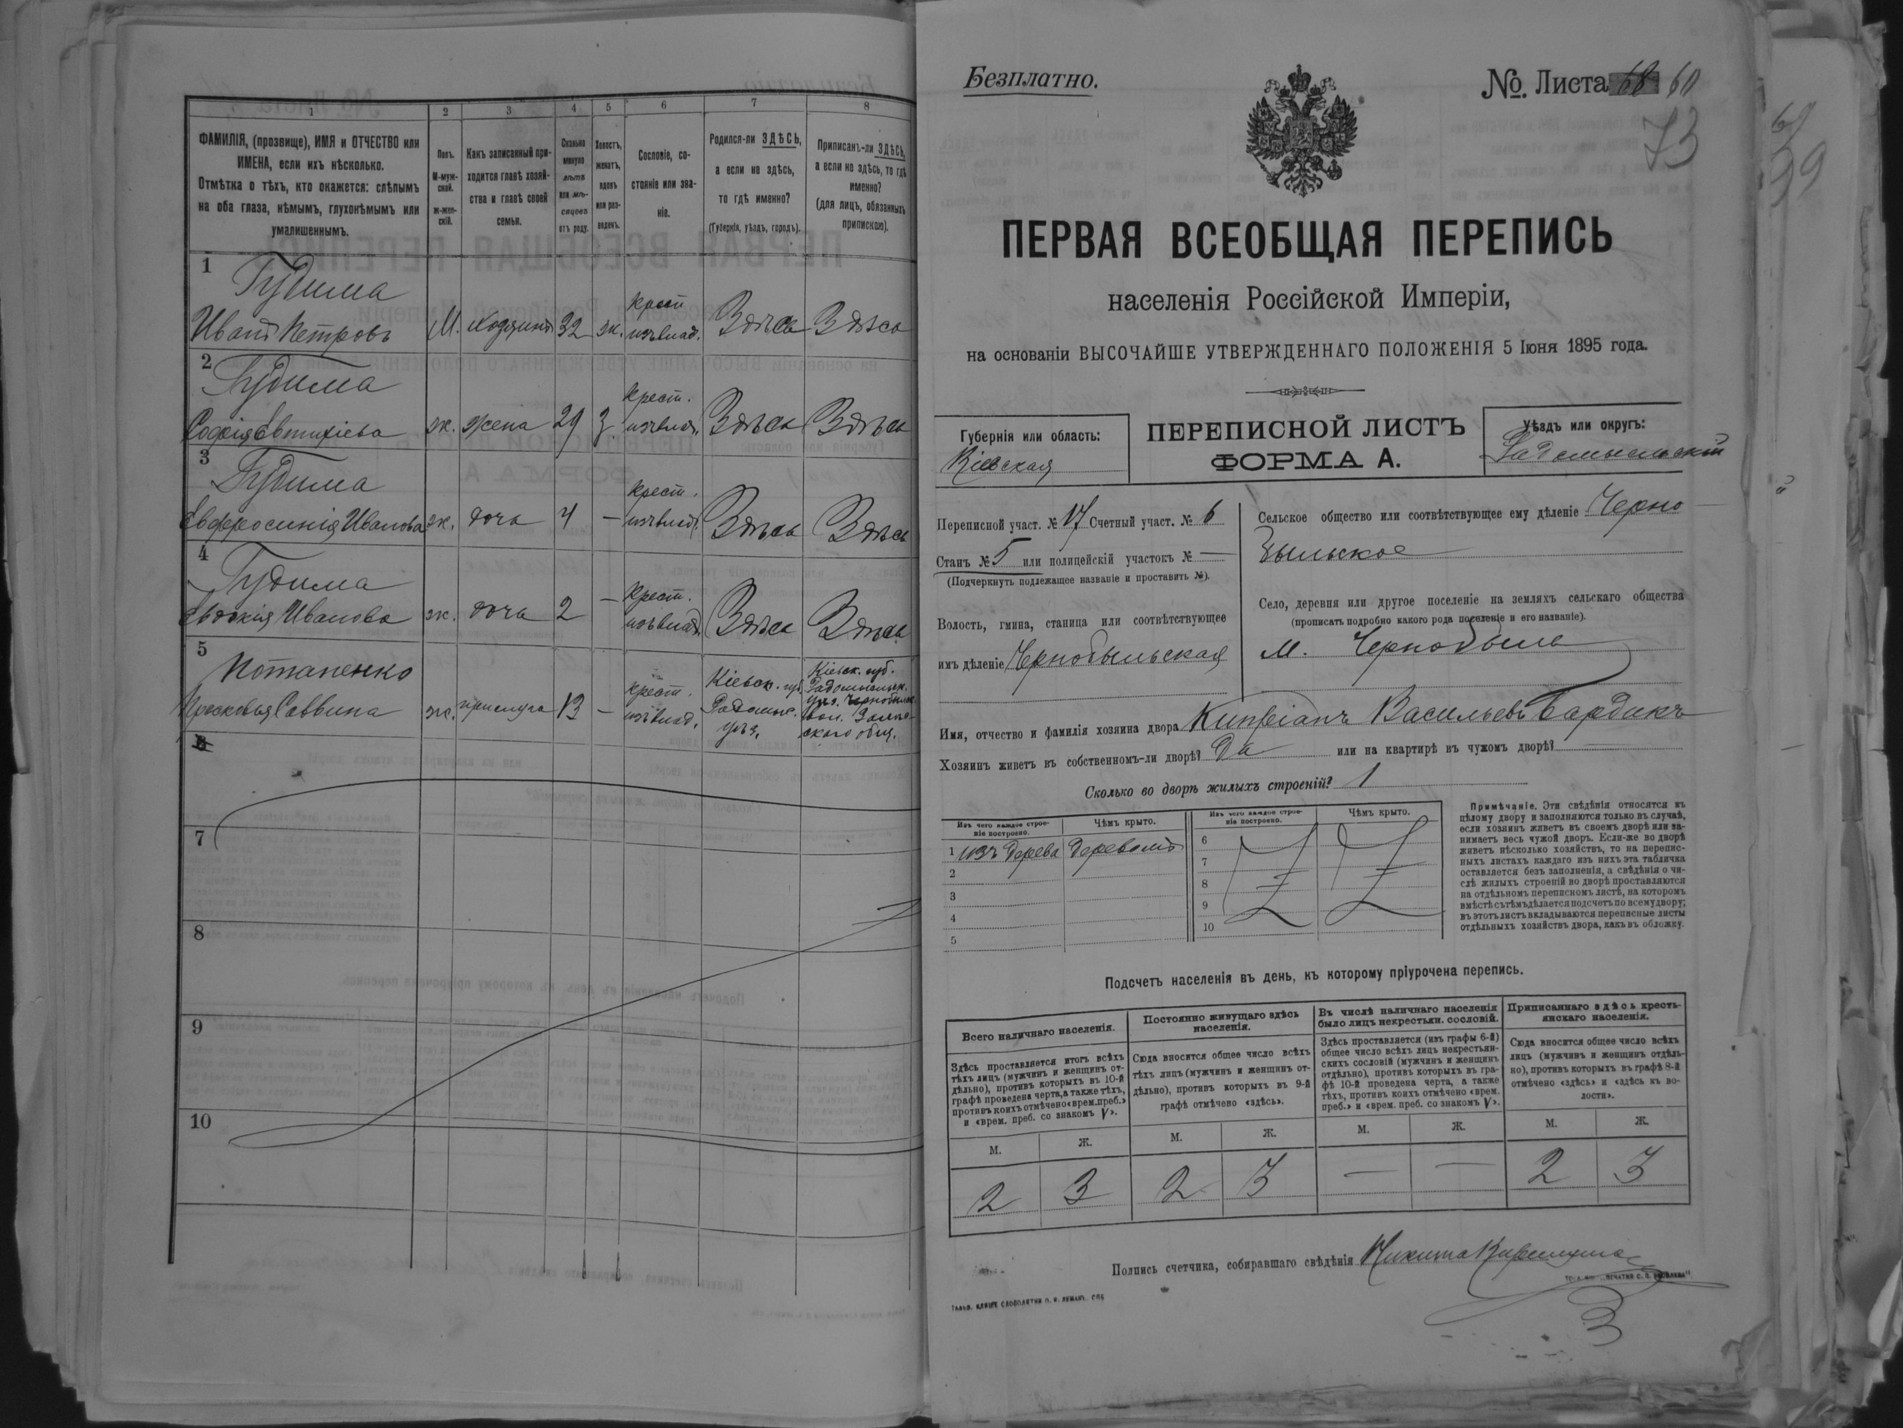 1 2 3 4 5 6 7 8
ФАМИЛІЯ, (прозвище), ИМЯ и ОТЧЕСТВО или
ИМЕНА, если ихъ нѣсколько.
Отмѣтка о тѣхъ, кто окажется: слѣпымъ
на оба глаза, нѣмымъ, глухонѣмымъ или
умалишеннымъ.
Полъ.
М-муж-
ской.
ж-жен-
скій.
Какъ записанный при-
ходится главѣ хозяй-
ства и главѣ своей
семьи.
Сколько
минуло
лѣтъ
или мѣ-
сяцевъ
отъ роду.
Холостъ,
женатъ,
вдовъ
или раз-
веденъ.
Сословіе, со-
стояніе или зва-
ніе.
Родился-ли ЗДѢСЬ,
а если не здѣсь,
то гдѣ именно?
(Губернія, уѣздъ, городъ).
Приписанъ-ли ЗДѢСЬ,
а если не здѣсь, то гдѣ
именно?
(для лицъ, обязанныхъ
припискою).
1
Гудима
Иванъ Петровъ М. хозяинъ 32 ж. крест. изъ влад. Здѣсь Здѣсь
2
Гудима
Софія Евтихіева ж. жена 29 з. крест. изъ влад. Здѣсь Здѣсь
3
Гудима
Евфросинія Иванова ж. дочь 4 — крест. изъ влад. Здѣсь Здѣсь
4
Гудима
Евдокія Иванова ж. дочь 2 — крест. изъ влад. Здѣсь Здѣсь
5
Потапенко
Прасковья Саввина ж. прислуга 13 — крест. изъ влад. Кіевск. губ. Радомысл. уѣз. Кіевск. губ. Радомысльск. уѣз. Чернобыльск. вол.
7
8
9
10
Безплатно.
№. Листа 60
73
ПЕРВАЯ ВСЕОБЩАЯ ПЕРЕПИСЬ
населенія Россійской Имперіи,
на основаніи ВЫСОЧАЙШЕ УТВЕРЖДЕННАГО ПОЛОЖЕНІЯ 5 Іюня 1895 года.
Губернія или область:
Кіевская
ПЕРЕПИСНОЙ ЛИСТЪ
ФОРМА А.
Уѣздъ или округъ:
Радомысльскій
Переписной участ. № 17 Счетный участ. № 6
Станъ № 5 или полицейскій участокъ № —
(Подчеркнуть подлежащее названіе и проставить №).
Волость, гмина, станица или соотвѣтствующее
имъ дѣленіе Чернобыльская
Сельское общество или соотвѣтствующее ему дѣленіе Черно-
быльское
Село, деревня или другое поселеніе на земляхъ сельскаго общества
(прописать подробно какого рода поселеніе и его названіе).
М. Чернобыль
Имя, отчество и фамилія хозяина двора Кипріанъ Васильевъ Бардакъ
Хозяинъ живетъ въ собственномъ-ли дворѣ? Да или на квартирѣ въ чужомъ дворѣ? —
Сколько во дворѣ жилыхъ строеній? 1
Изъ чего каждое строе-
ніе построено.
Чѣмъ крыто.
Изъ чего каждое строе-
ніе построено.
Чѣмъ крыто.
1 изъ дерева деревомъ
2
3
4
5
6
7
8
9
10
Примѣчаніе. Эти свѣдѣнія относятся къ
цѣлому двору и заполняются только въ случаѣ,
если хозяинъ живетъ въ своемъ дворѣ или за-
нимаетъ весь чужой дворъ. Если-же во дворѣ
живетъ нѣсколько хозяйствъ, то на перепис-
ныхъ листахъ каждаго изъ нихъ эта табличка
оставляется безъ заполненія, а свѣдѣнія о чи-
слѣ жилыхъ строеній во дворѣ проставляются
на отдѣльномъ переписномъ листѣ, на которомъ
вмѣстѣ съ тѣмъ дѣлается подсчетъ по всему двору;
въ этотъ листъ вкладываются переписные листы
отдѣльныхъ хозяйствъ двора, какъ въ обложку.
Подсчетъ населенія въ день, къ которому пріурочена перепись.
Всего наличнаго населенія.
Здѣсь проставляется итогъ всѣхъ
тѣхъ лицъ (мужчинъ и женщинъ от-
дѣльно), противъ которыхъ въ 10-й
графѣ проведена черта, а также тѣхъ,
противъ коихъ отмѣчено «врем. преб.»
и «врем. преб. со знакомъ V».
Постоянно живущаго здѣсь
населенія.
Сюда вносится общее число всѣхъ
тѣхъ лицъ (мужчинъ и женщинъ от-
дѣльно), противъ которыхъ въ 9-й
графѣ отмѣчено «здѣсь».
Въ числѣ наличнаго населенія
было лицъ некрестьян. сословій.
Здѣсь проставляется (изъ графы 6-й)
общее число всѣхъ лицъ некрестьян-
скихъ сословій (мужчинъ и женщинъ
отдѣльно), противъ которыхъ въ гра-
фѣ 10-й проведена черта, а также
тѣхъ, противъ коихъ отмѣчено «врем.
преб.» и «врем. преб. со знакомъ V».
Приписаннаго здѣсь кресть-
янскаго населенія.
Сюда вносится общее число всѣхъ
лицъ (мужчинъ и женщинъ отдѣль-
но), противъ которыхъ въ графѣ 8-й
отмѣчено «здѣсь» и «здѣсь къ во-
лости».
М. Ж. М. Ж. М. Ж. М. Ж.
2 3 2 3 — — 2 3
Подпись счетчика, собиравшаго свѣдѣнія Никита
39